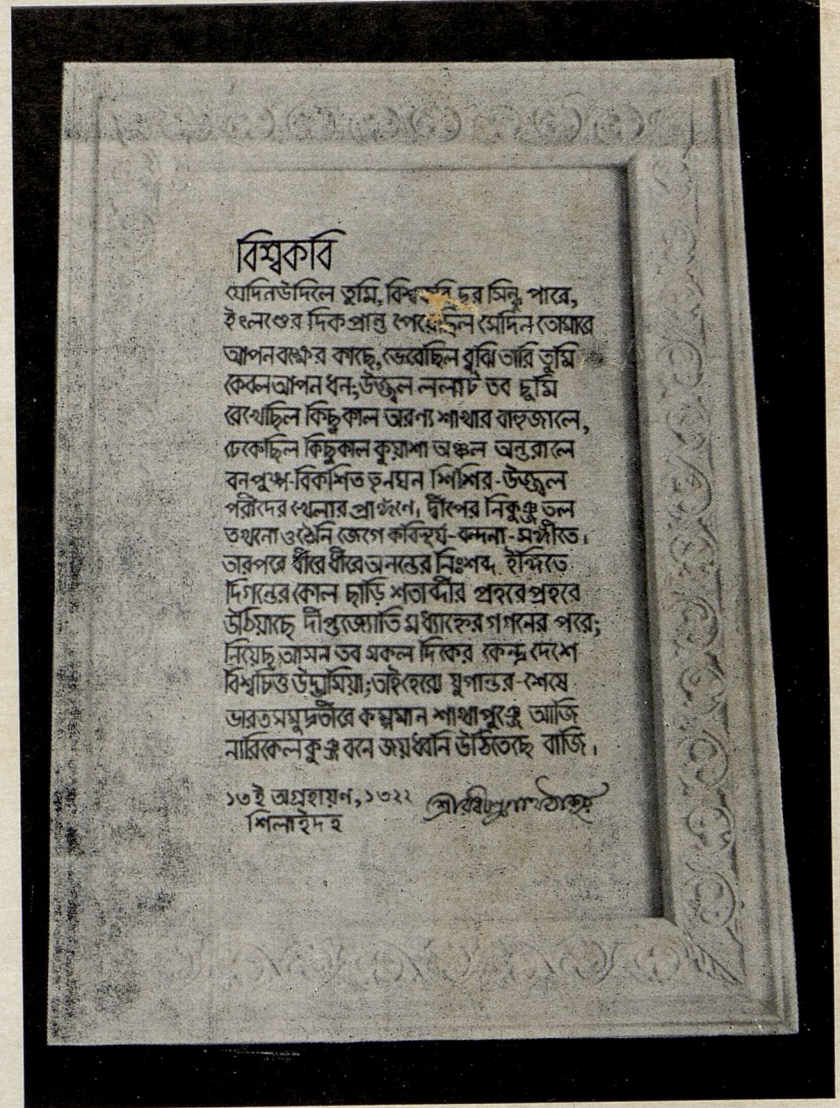 বিশ্বকবি
যেদিন উদিলে তুমি, বিশ্বকবি দূর সিন্ধু পারে,
ইংলণ্ডের দিক প্রান্ত পেয়েছিল সেদিন তোমারে
আপন বক্ষের কাছে, ভেবেছিল বুঝি তারি তুমি
কেবল আপন ধন; উজ্জ্বল ললাট তব চুমি
রেখেছিল কিছুকাল অরণ্য শাখার বাহুজালে,
ঢেকেছিল কিছুকাল কুয়াশা অঞ্চল অন্তরালে
বনপুষ্প-বিকশিত তৃনঘন শিশির-উজ্জ্বল
পরীদের খেলার প্রাঙ্গণে। দ্বীপের নিকুঞ্জ তল
তখনো ওঠেনি জেগে কবিসূর্য-বন্দনা-সঙ্গীতে।
তারপরে ধীরে ধীরে অনন্তের নিঃশব্দ ইঙ্গিতে
দিগন্তের কোল ছাড়ি শতাব্দীর প্রহরে প্রহরে
উঠিয়াছে দীপ্তজ্যোতি মধ্যাহ্নের গগনের পরে;
নিয়েছ আসন তব সকল দিকের কেন্দ্র দেশে
বিশ্বচিত্ত উদ্ভাসিয়া; তাই হেরো যুগান্তর-শেষে
ভারতসমুদ্রতীরে কম্পমান শাখাপুঞ্জে আজি
নারিকেল কুঞ্জ বনে জয়ধ্বনি উঠিতেছে বাজি।
১৩ই অগ্রহায়ন, ১৩২২ শ্রীরবীন্দ্রনাথ ঠাকুর
শিলাইদহ